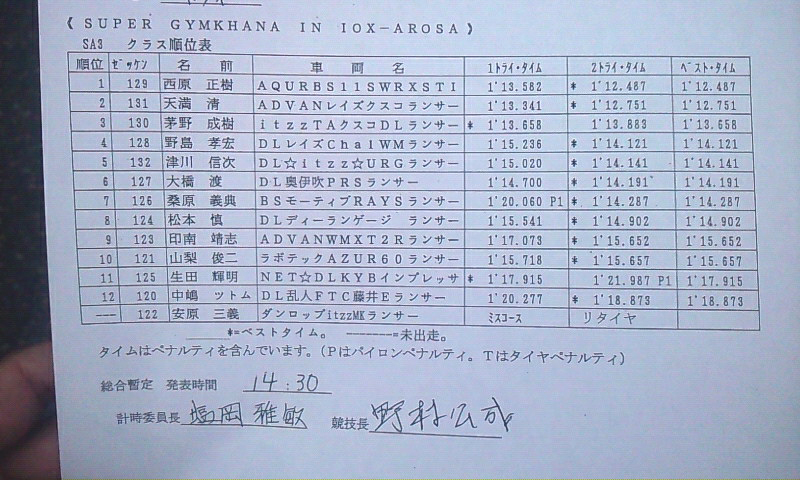 《 SUPER GYMKHANA IN IOX−AROSA 》
SA3 クラス順位表
順位 ｾﾞｯｹﾝ 名 前 車 両 名 1ﾄﾗｲ･ﾀｲﾑ 2ﾄﾗｲ･ﾀｲﾑ ﾍﾞｽﾄ･ﾀｲﾑ
1 129 西原 正樹 AQURBS11SWRXSTI 1'13.582 * 1'12.487 1'12.487
2 131 天満 清 ADVANレイズクスコランサー 1'13.341 * 1'12.751 1'12.751
3 130 茅野 成樹 itzzTAクスコDLランサー * 1'13.658 1'13.883 1'13.658
4 128 野島 孝宏 DLレイズChalWMランサー 1'15.236 * 1'14.121 1'14.121
5 132 津川 信次 DL☆itzz☆URGランサー 1'15.020 * 1'14.141 1'14.141
6 127 大橋 渡 DL奥伊吹PRSランサー 1'14.700 * 1'14.191 1'14.191
7 126 桑原 義典 BSモーティブRAYSランサー 1'20.060 P1 * 1'14.287 1'14.287
8 124 松本 慎 DLディーランゲージ ランサー 1'15.541 * 1'14.902 1'14.902
9 123 印南 靖志 ADVANWMXT2Rランサー 1'17.073 * 1'15.652 1'15.652
10 121 山梨 俊二 ラボテックAZUR60ランサー 1'15.718 * 1'15.657 1'15.657
11 125 生田 輝明 NET☆DLKYBインプレッサ * 1'17.915 1'21.987 P1 1'17.915
12 120 中嶋 ツトム DL乱人FTC藤井Eランサー 1'20.277 * 1'18.873 1'18.873
--- 122 安原 三義 ダンロップitzzMKランサー ﾐｽｺｰｽ リタイヤ
*=ベストタイム。 ------=未出走。
タイムはペナルティを含んでいます。(Pはパイロンペナルティ。Tはタイヤペナルティ)
総合暫定 発表時間 14:30
計時委員長 塩岡 雅敏 競技長 野村公成